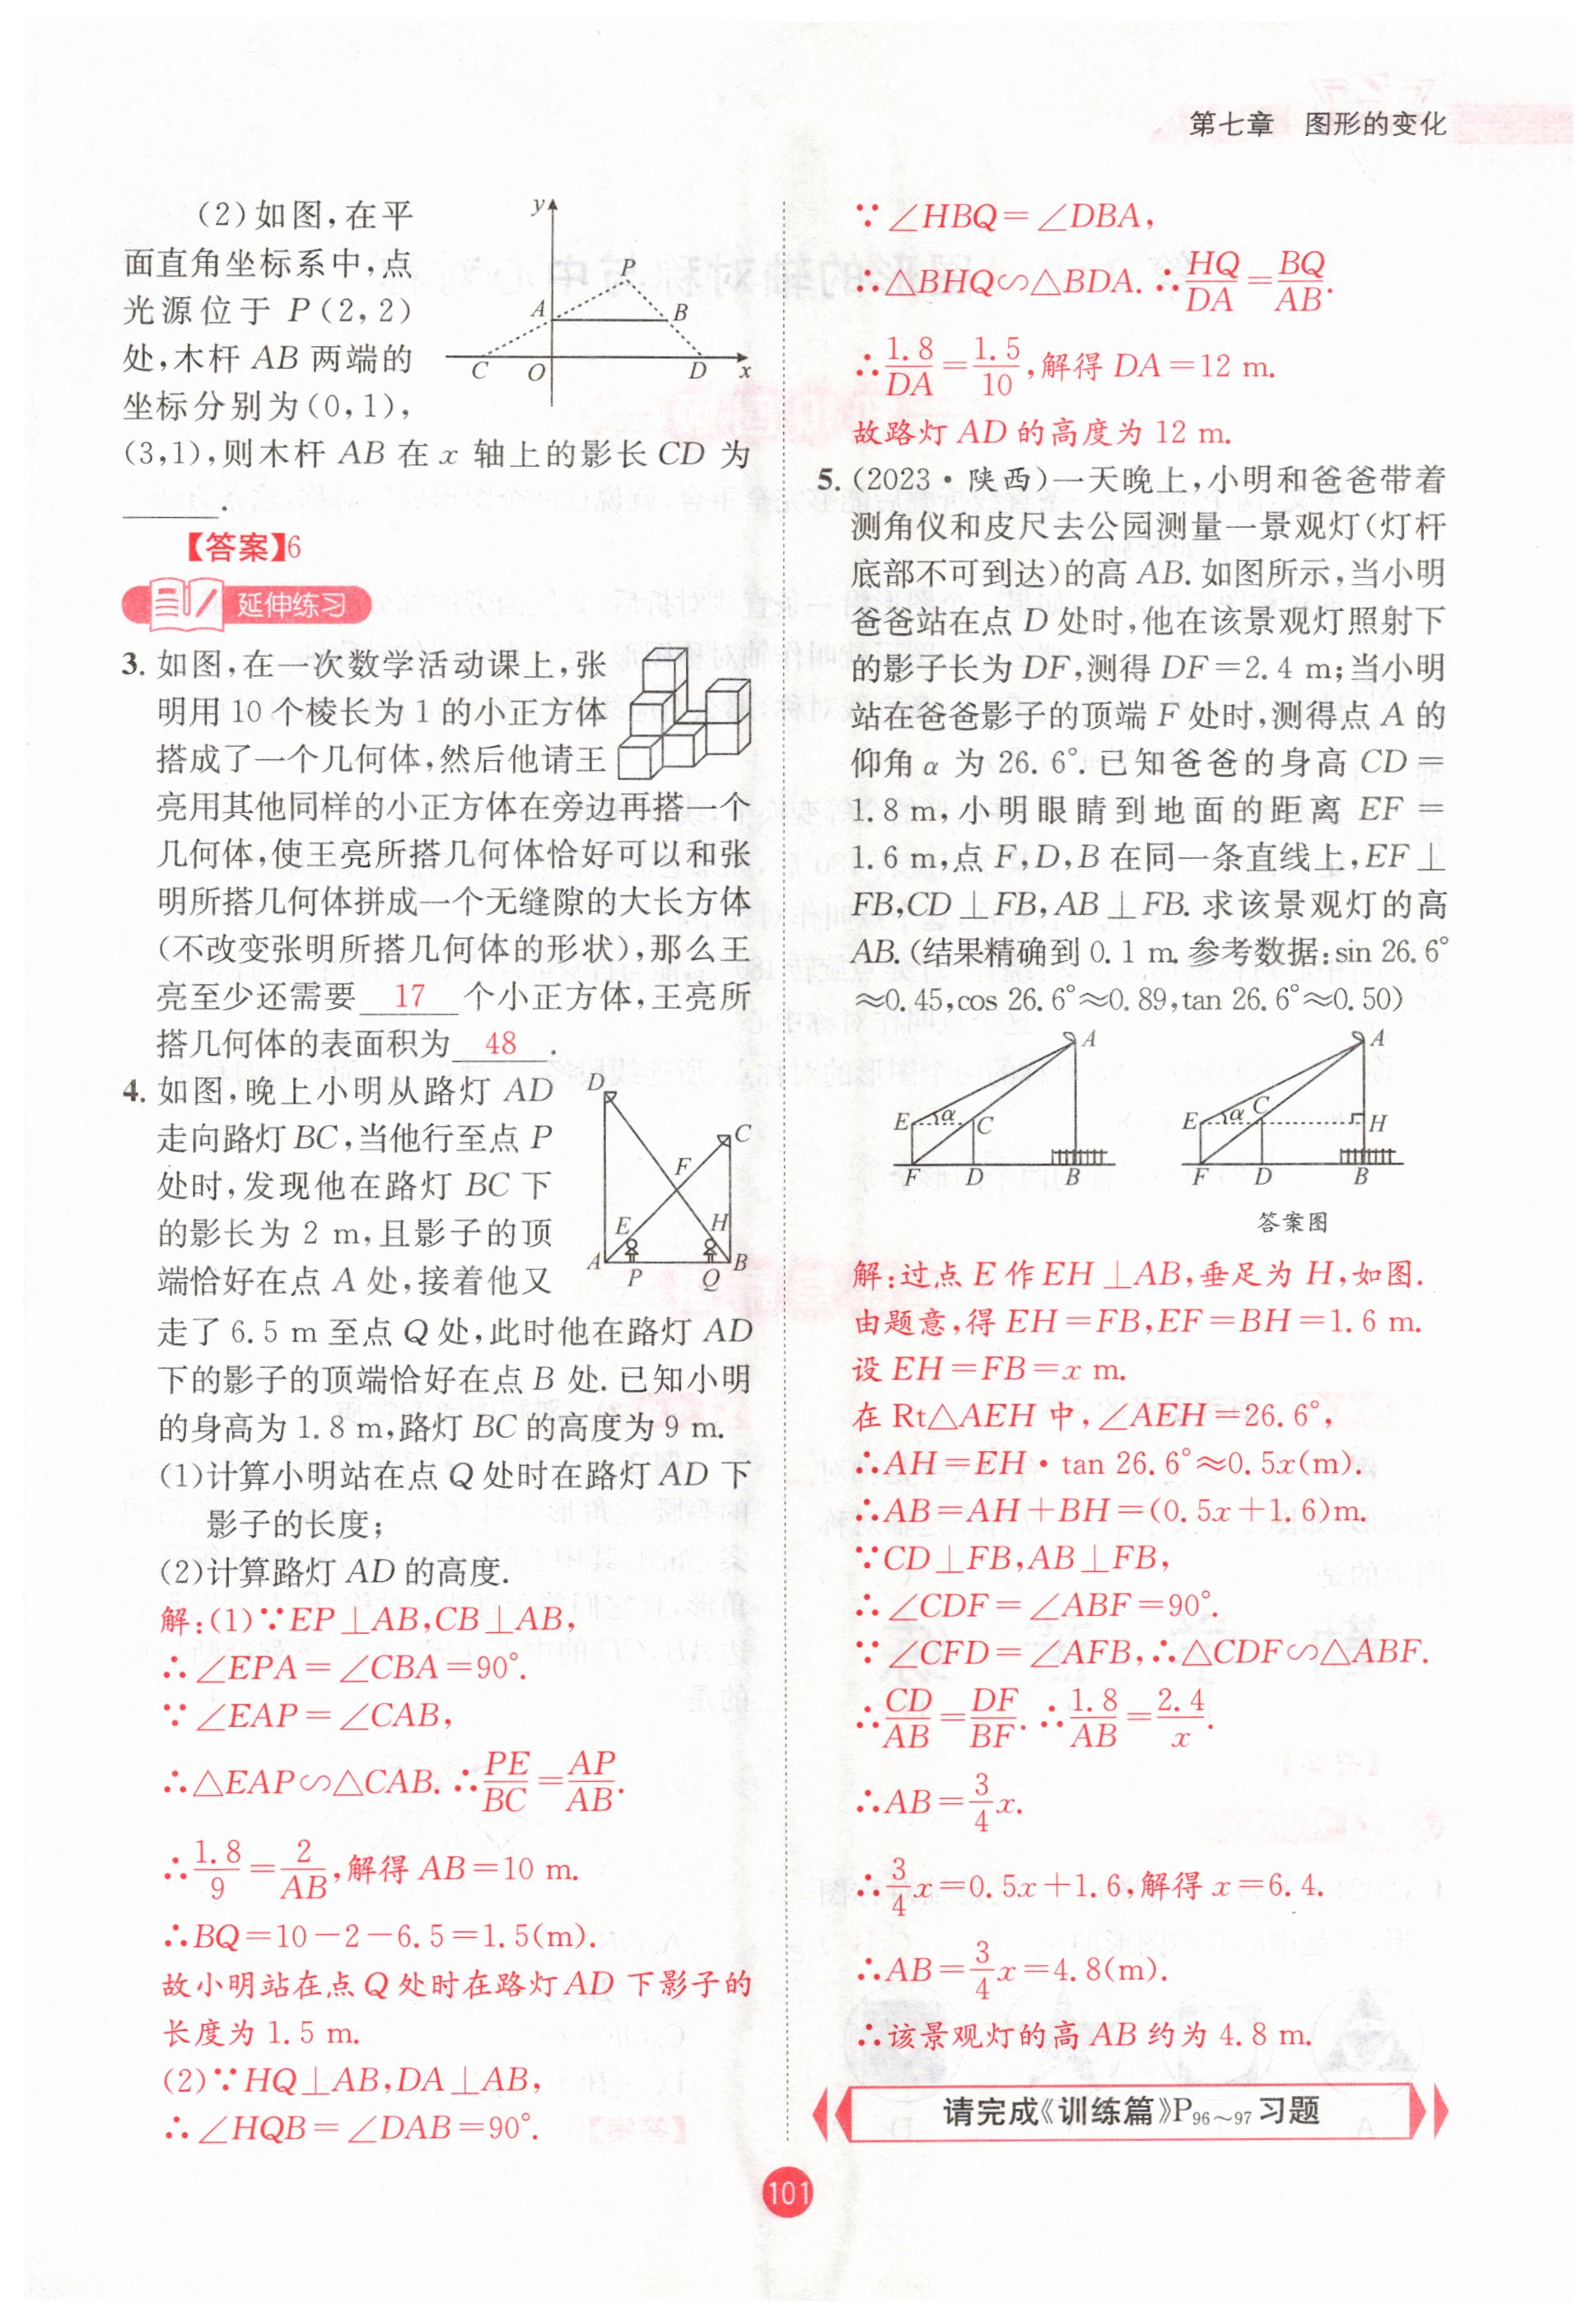 第七章 图形的变化
(2)如图,在平
面直角坐标系中,点
光源位于 P(2,2)
处,木杆 AB 两端的
坐标分别为(0,1),
(3,1),则木杆 AB 在 x 轴上的影长 CD 为
______.
y
P
A
B
C
O
D
x
【答案】6
延伸练习
3. 如图,在一次数学活动课上,张
明用 10 个棱长为 1 的小正方体
搭成了一个几何体,然后他请王
亮用其他同样的小正方体在旁边再搭一个
几何体,使王亮所搭几何体恰好可以和张
明所搭几何体拼成一个无缝隙的大长方体
(不改变张明所搭几何体的形状),那么王
亮至少还需要 17 个小正方体,王亮所
搭几何体的表面积为 48 .
4. 如图,晚上小明从路灯 AD
走向路灯 BC,当他行至点 P
处时,发现他在路灯 BC 下
的影长为 2 m,且影子的顶
端恰好在点 A 处,接着他又
走了 6.5 m 至点 Q 处,此时他在路灯 AD
下的影子的顶端恰好在点 B 处. 已知小明
的身高为 1.8 m,路灯 BC 的高度为 9 m.
D
C
F
E
H
A
P
Q
B
(1)计算小明站在点 Q 处时在路灯 AD 下
影子的长度;
(2)计算路灯 AD 的高度.
解:(1)∵EP⊥AB,CB⊥AB,
∴∠EPA=∠CBA=90°.
∵∠EAP=∠CAB,
∴△EAP∽△CAB. ∴PE/BC=AP/AB.
∴1.8/9=2/AB,解得 AB=10 m.
∴BQ=10-2-6.5=1.5(m).
故小明站在点 Q 处时在路灯 AD 下影子的
长度为 1.5 m.
(2)∵HQ⊥AB,DA⊥AB,
∴∠HQB=∠DAB=90°.
∵∠HBQ=∠DBA,
∴△BHQ∽△BDA. ∴HQ/DA=BQ/AB.
∴1.8/DA=1.5/10,解得 DA=12 m.
故路灯 AD 的高度为 12 m.
5. (2023·陕西)一天晚上,小明和爸爸带着
测角仪和皮尺去公园测量一景观灯(灯杆
底部不可到达)的高 AB. 如图所示,当小明
爸爸站在点 D 处时,他在该景观灯照射下
的影子长为 DF,测得 DF=2.4 m;当小明
站在爸爸影子的顶端 F 处时,测得点 A 的
仰角 α 为 26.6°. 已知爸爸的身高 CD=
1.8 m,小明眼睛到地面的距离 EF=
1.6 m,点 F,D,B 在同一条直线上,EF⊥
FB,CD⊥FB,AB⊥FB. 求该景观灯的高
AB. (结果精确到 0.1 m. 参考数据:sin 26.6°
≈0.45,cos 26.6°≈0.89,tan 26.6°≈0.50)
A
E
α
C
F
D
B
A
E
α
C
H
F
D
B
答案图
解:过点 E 作 EH⊥AB,垂足为 H,如图.
由题意,得 EH=FB,EF=BH=1.6 m.
设 EH=FB=x m.
在 Rt△AEH 中,∠AEH=26.6°,
∴AH=EH·tan 26.6°≈0.5x(m).
∴AB=AH+BH=(0.5x+1.6)m.
∵CD⊥FB,AB⊥FB,
∴∠CDF=∠ABF=90°.
∵∠CFD=∠AFB,∴△CDF∽△ABF.
∴CD/AB=DF/BF. ∴1.8/AB=2.4/x.
∴AB=3/4x.
∴3/4x=0.5x+1.6,解得 x=6.4.
∴AB=3/4x=4.8(m).
∴该景观灯的高 AB 约为 4.8 m.
请完成《训练篇》P96~97 习题
101